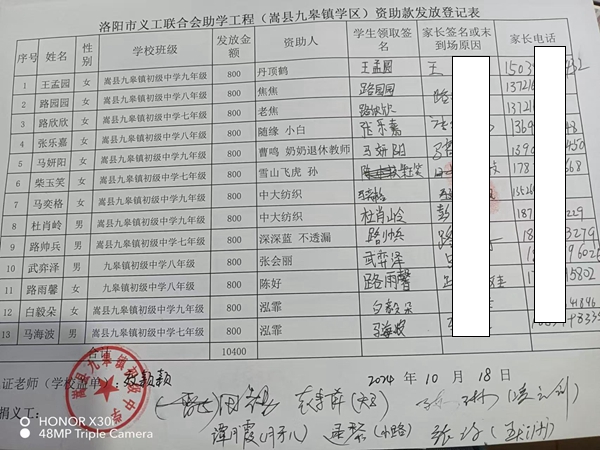 洛阳市义工联合会助学工程（嵩县九皋镇学区）资助款发放登记表
序号 姓名 性别 学校班级 发放金额 资助人 学生领取签名 家长签名或未到场原因 家长电话
1 王孟园 女 嵩县九皋镇初级中学九年级 800 丹顶鹤 王孟园 王 1503
2 路园园 女 嵩县九皋镇初级中学八年级 800 焦焦 路园园 路 13721
3 路欣欣 女 嵩县九皋镇初级中学七年级 800 老焦 路欣欣 13721
4 张乐嘉 女 嵩县九皋镇初级中学八年级 800 随缘 小白 张乐嘉 1369
5 马妍阳 女 嵩县九皋镇初级中学八年级 800 曹鸣 奶奶退休教师 马妍阳 1390 450
6 柴玉笑 女 嵩县九皋镇初级中学七年级 800 雪山飞虎 孙 178 668
7 马奕格 女 嵩县九皋镇初级中学七年级 800 中大纺织
8 杜肖岭 男 嵩县九皋镇初级中学九年级 800 中大纺织 杜肖岭 彭 187 229
9 路帅兵 男 嵩县九皋镇初级中学七年级 800 深深蓝 不透漏 路帅兵 路 3279
10 武弈泽 男 九皋镇初级中学八年级 800 张会丽 武弈泽
11 路雨馨 女 九皋镇初级中学八年级 800 陈好 路雨馨 5802
12 白毅朵 女 嵩县九皋镇初级中学九年级 800 泓霏 白毅朵 41846
13 马海波 男 嵩县九皋镇初级中学七年级 800 泓霏 马海波
合计 10400
证老师（学校盖章）：
2024 年 10 月 18 日
嵩县九皋镇初级中学
捐义工：
HONOR X30i
48MP Triple Camera